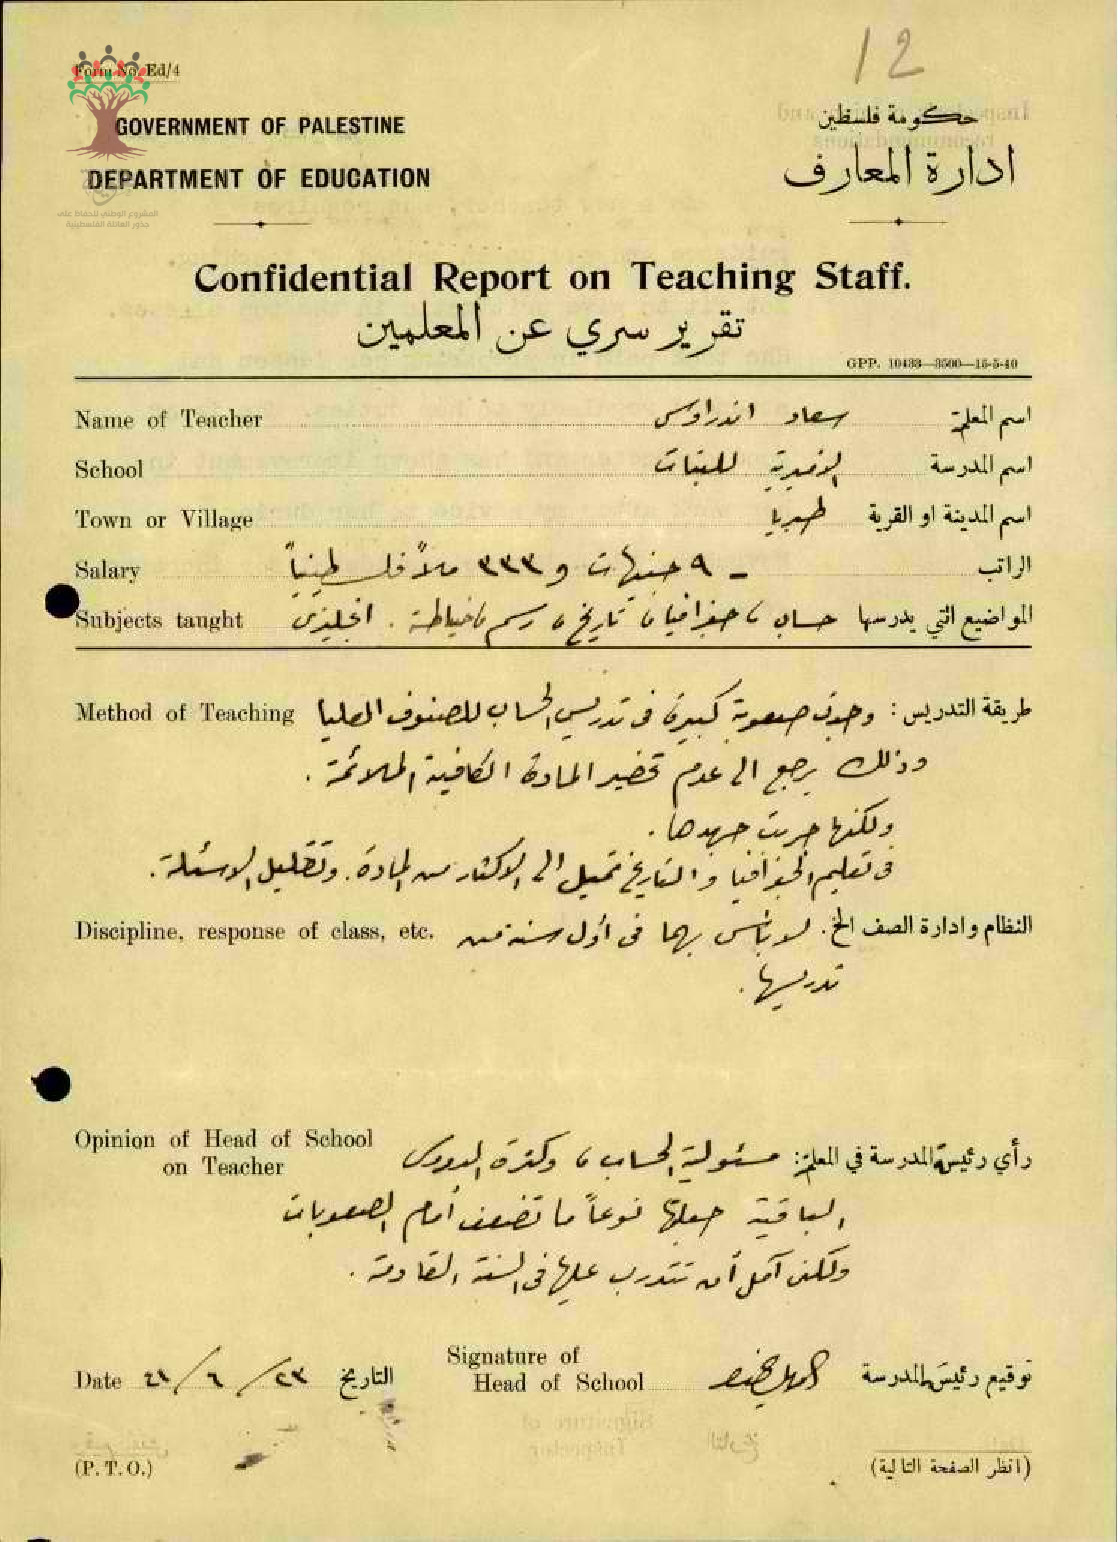 12
Form No. Ed/4
GOVERNMENT OF PALESTINE
DEPARTMENT OF EDUCATION
حكومة فلسطين
ادارة المعارف
المشروع الوطني للحفاظ على
جذور العائلة الفلسطينية
Confidential Report on Teaching Staff.
تقرير سري عن المعلمين
GPP. 10433—3500—15-5-40
Name of Teacher سعاد اندراوس اسم المعلمة
School الاميرية للبنات اسم المدرسة
Town or Village طبريا اسم المدينة او القرية
Salary ٩ جنيهات و ٣٣٣ ملاً فلسطينياً الراتب
Subjects taught حساب، جغرافيا، تاريخ، رسم، خياطة. انجليزي المواضيع التي يدرسها
Method of Teaching طريقة التدريس: وجدت صعوبة كبيرة في تدريس الحساب للصفوف العليا
وذلك يرجع الى عدم تحضير المادة الكافية الملائمة.
ولكنها جربت جهدها.
في تعليم الجغرافيا والتاريخ تميل الى الاكثار من المادة. وتقليل الاسئلة.
Discipline, response of class, etc. النظام وادارة الصف الخ. لا بأس بهما في أول سنة من
تدريسها.
Opinion of Head of School
on Teacher
رأي رئيسة المدرسة في المعلمة: مسئولية الحساب، وكثرة الدروس
الباقية جعلتها نوعاً ما تضعف أمام الصعوبات
ولكن آمل أن تتدرب عليها في السنة القادمة.
Signature of
Head of School توقيع رئيسة المدرسة
Date ٢٣/٦/٤١ التاريخ
(P. T. O.) (انظر الصفحة التالية)